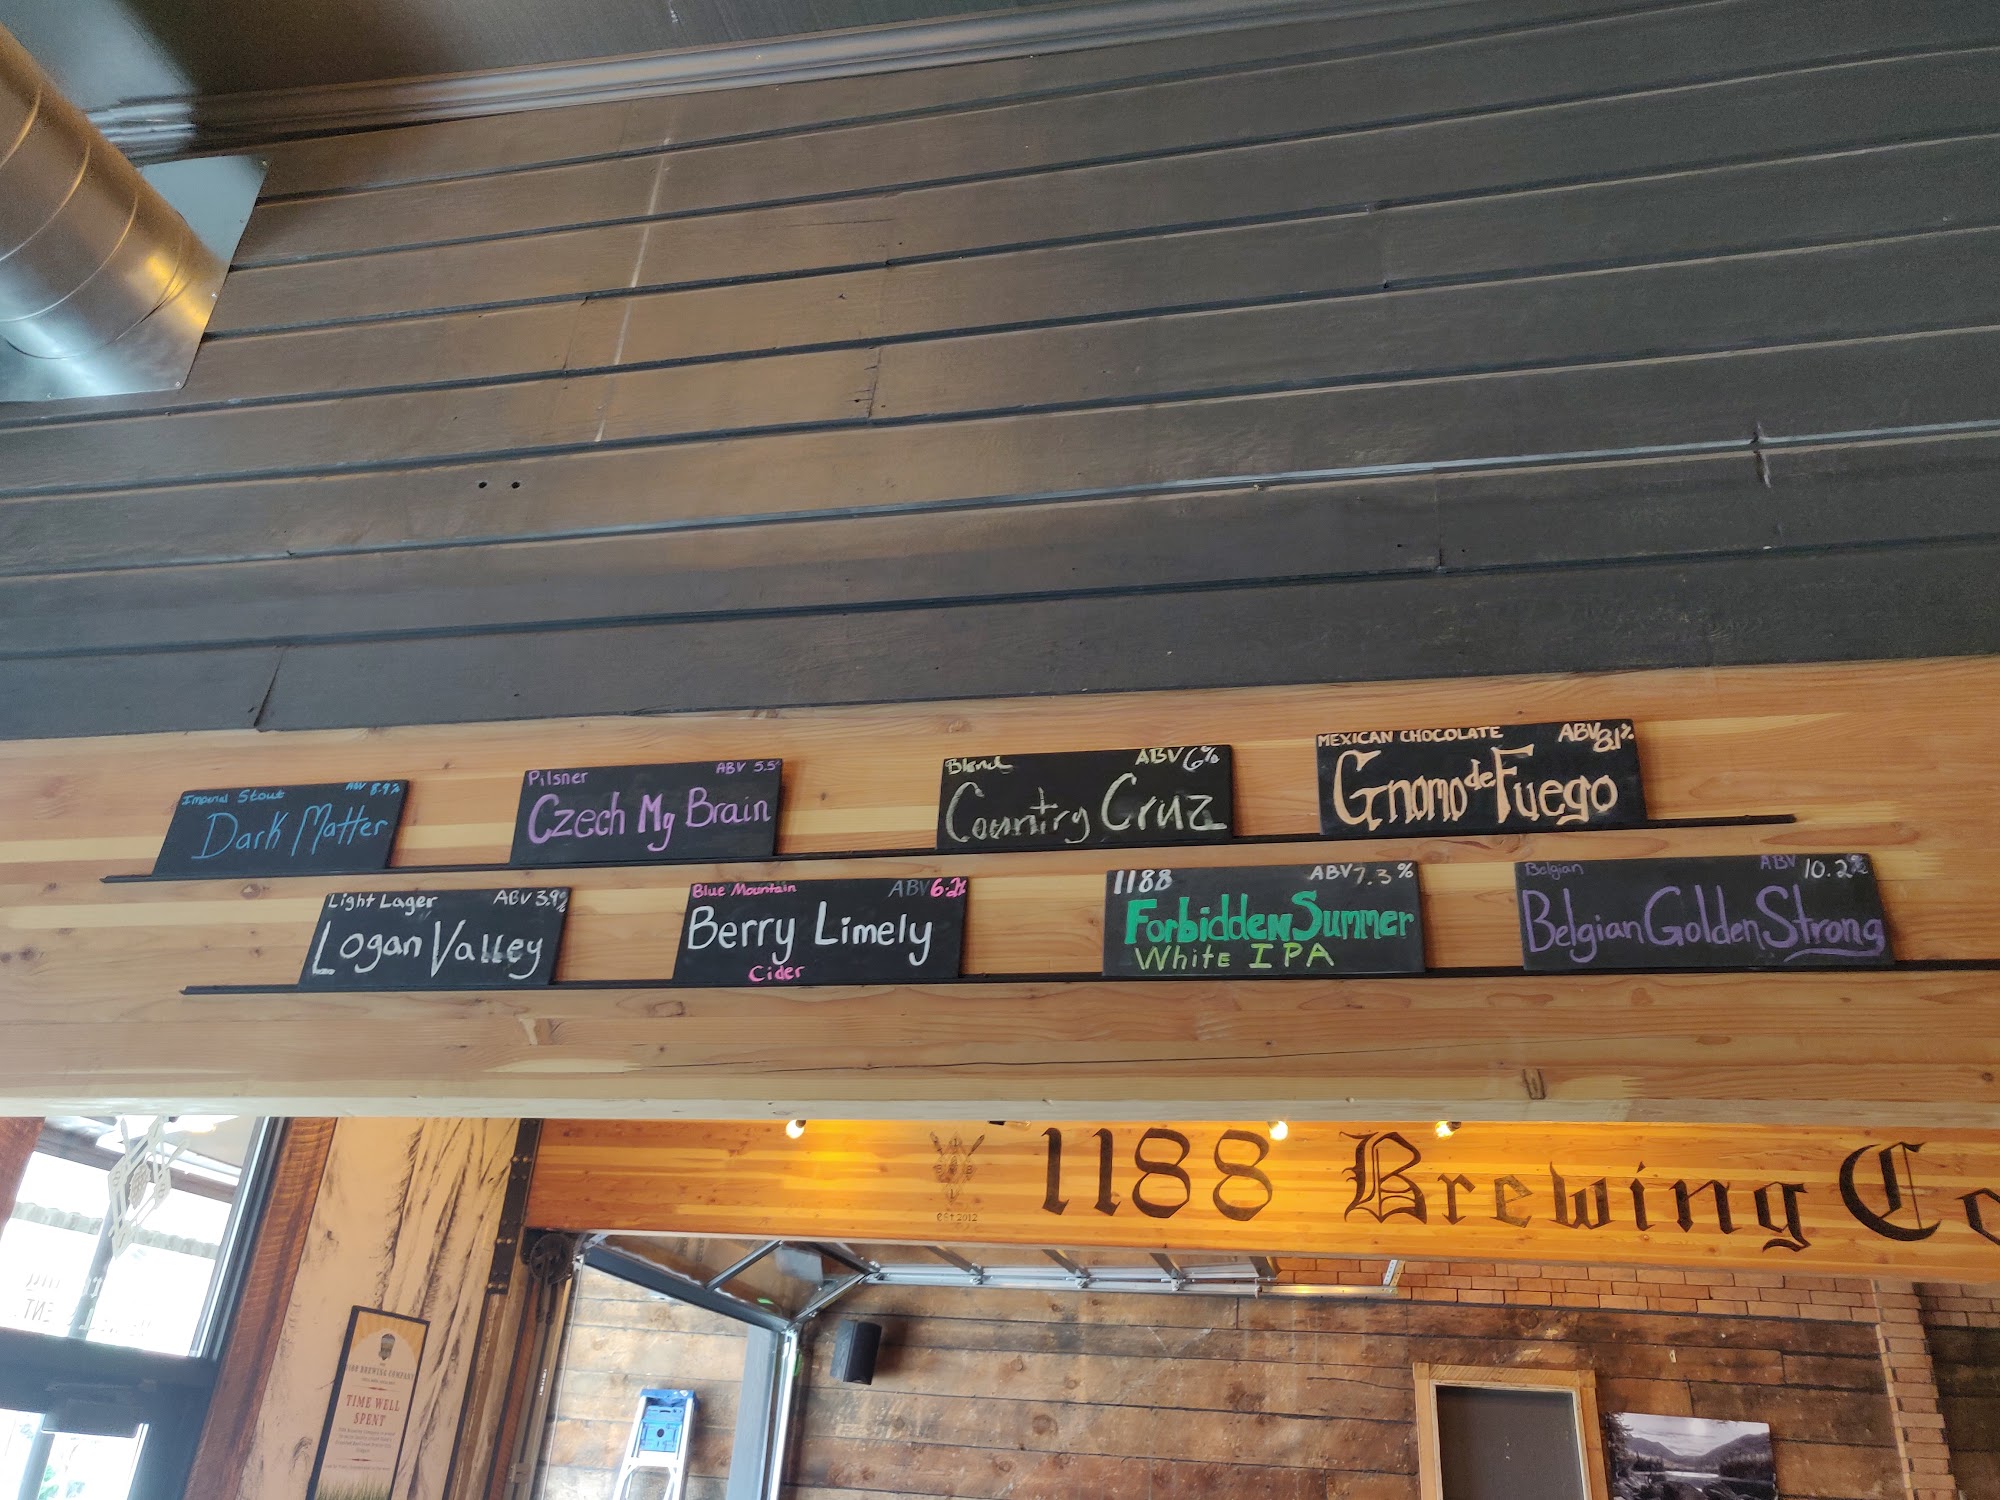 Imperial Stout ABV 8.9%
Dark Matter
Pilsner ABV 5.5
Czech My Brain
Blend ABV 6%
Country Cruz
MEXICAN CHOCOLATE ABV 8.1%
Gnomo de Fuego
Light Lager ABV 3.9%
Logan Valley
Blue Mountain ABV 6.2%
Berry Limely
Cider
1188 ABV 7.3%
Forbidden Summer
White IPA
Belgian ABV 10.2%
Belgian Golden Strong
EST 2012
1188 Brewing Co
1188 BREWING COMPANY
TIME WELL
SPENT